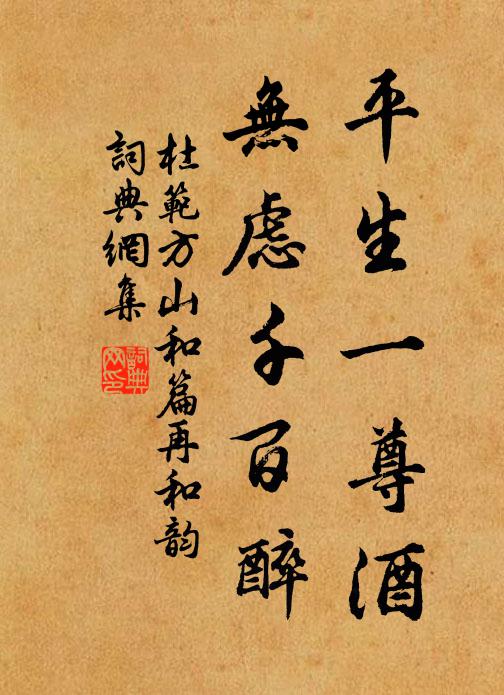 平生一尊酒
無慮千百醉
杜範方山和篇再和韵
詞典網集
詞典網印